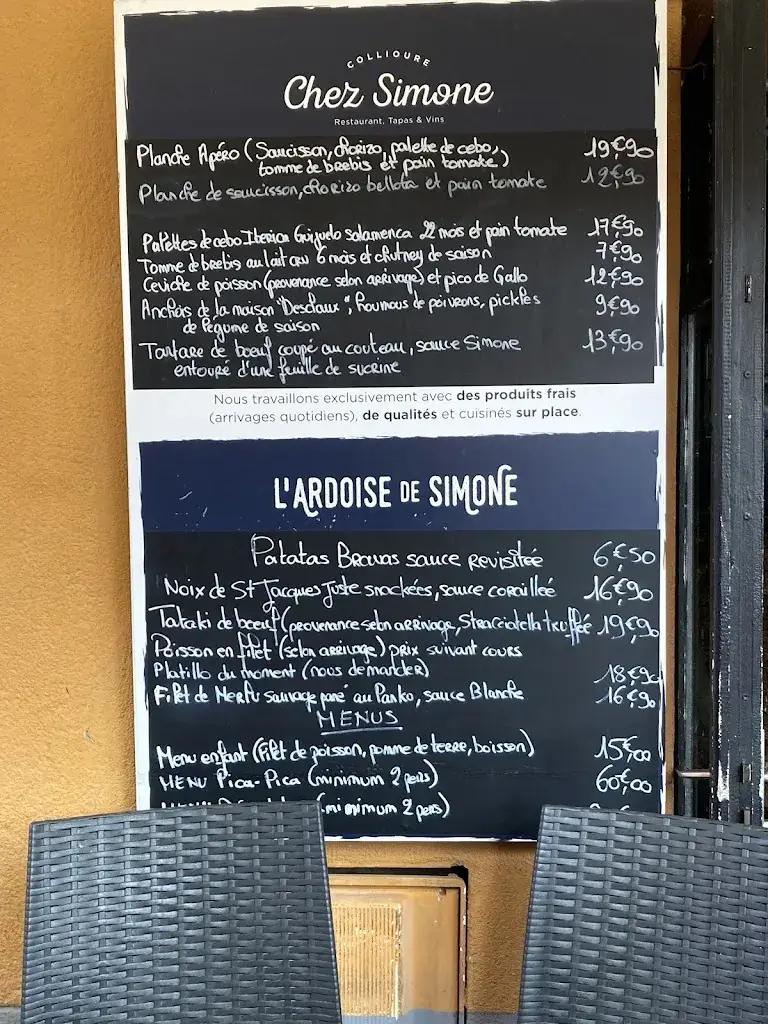 COLLIOURE
Chez Simone
Restaurant, Tapas & Vins
Planche Apéro (Saucisson, chorizo, palette de cebo, 19€90
tomme de brebis et pain tomate)
Planche de saucisson, chorizo bellota et pain tomate 12€90
Palettes de cebo Iberica Guijuelo salamenca 22 mois et pain tomate 17€90
Tomme de brebis au lait cru 6 mois et chutney de saison 7€90
Ceviche de poisson (provenance selon arrivage) et pico de Gallo 12€90
Anchois de la maison "Desclaux", houmous de poivrons, pickles 9€90
de légume de saison
Tartare de boeuf coupé au couteau, sauce Simone 13€90
entouré d'une feuille de sucrine
Nous travaillons exclusivement avec des produits frais
(arrivages quotidiens), de qualités et cuisinés sur place.
L'ARDOISE DE SIMONE
Patatas Bravas sauce revisitée 6€50
Noix de St Jacques juste snackées, sauce coraillée 16€90
Tataki de boeuf (provenance selon arrivage, stracciatella truffée 19€90
Poisson en filet (selon arrivage) prix suivant cours
Platillo du moment (nous demander) 18€90
Filet de Merlu sauvage pané au Panko, sauce Blanche 16€90
MENUS
Menu enfant (filet de poisson, pomme de terre, boisson) 15€00
MENU Pica-Pica (minimum 2 pers) 60€00
(minimum 2 pers)